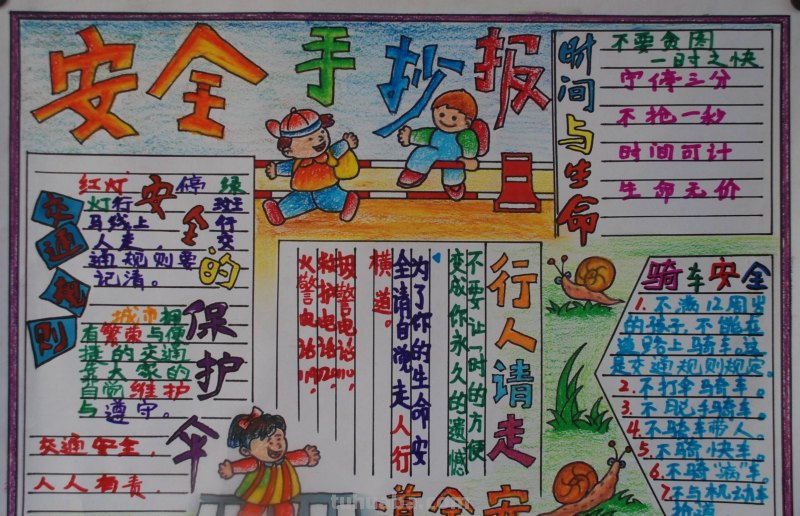 安全手抄报
时间与生命
不要贪图
一时之快
宁停三分
不抢一秒
时间可计
生命无价
交通规则
安全的保护伞
红灯停绿
灯行,斑
马线上行
人走,交
通规则要
记清。
城市拥
有繁荣与便
捷的交通
靠大家的
自觉维护
与遵守。
交通安全,
人人有责,
行人请走
不要让一时的方便
变成你永久的遗憾
为了你的生命安
全请自觉走人行
横道。
报警电话110,
救护电话120,
火警电话119,
骑车安全
1.不满12周岁
的孩子,不能在
道路上骑车。这
是交通规则规定。
2.不打伞骑车。
3.不脱手骑车。
4.不骑车带人。
5.不骑快车。
6.不骑“病”车。
7.不与机动车
抢道